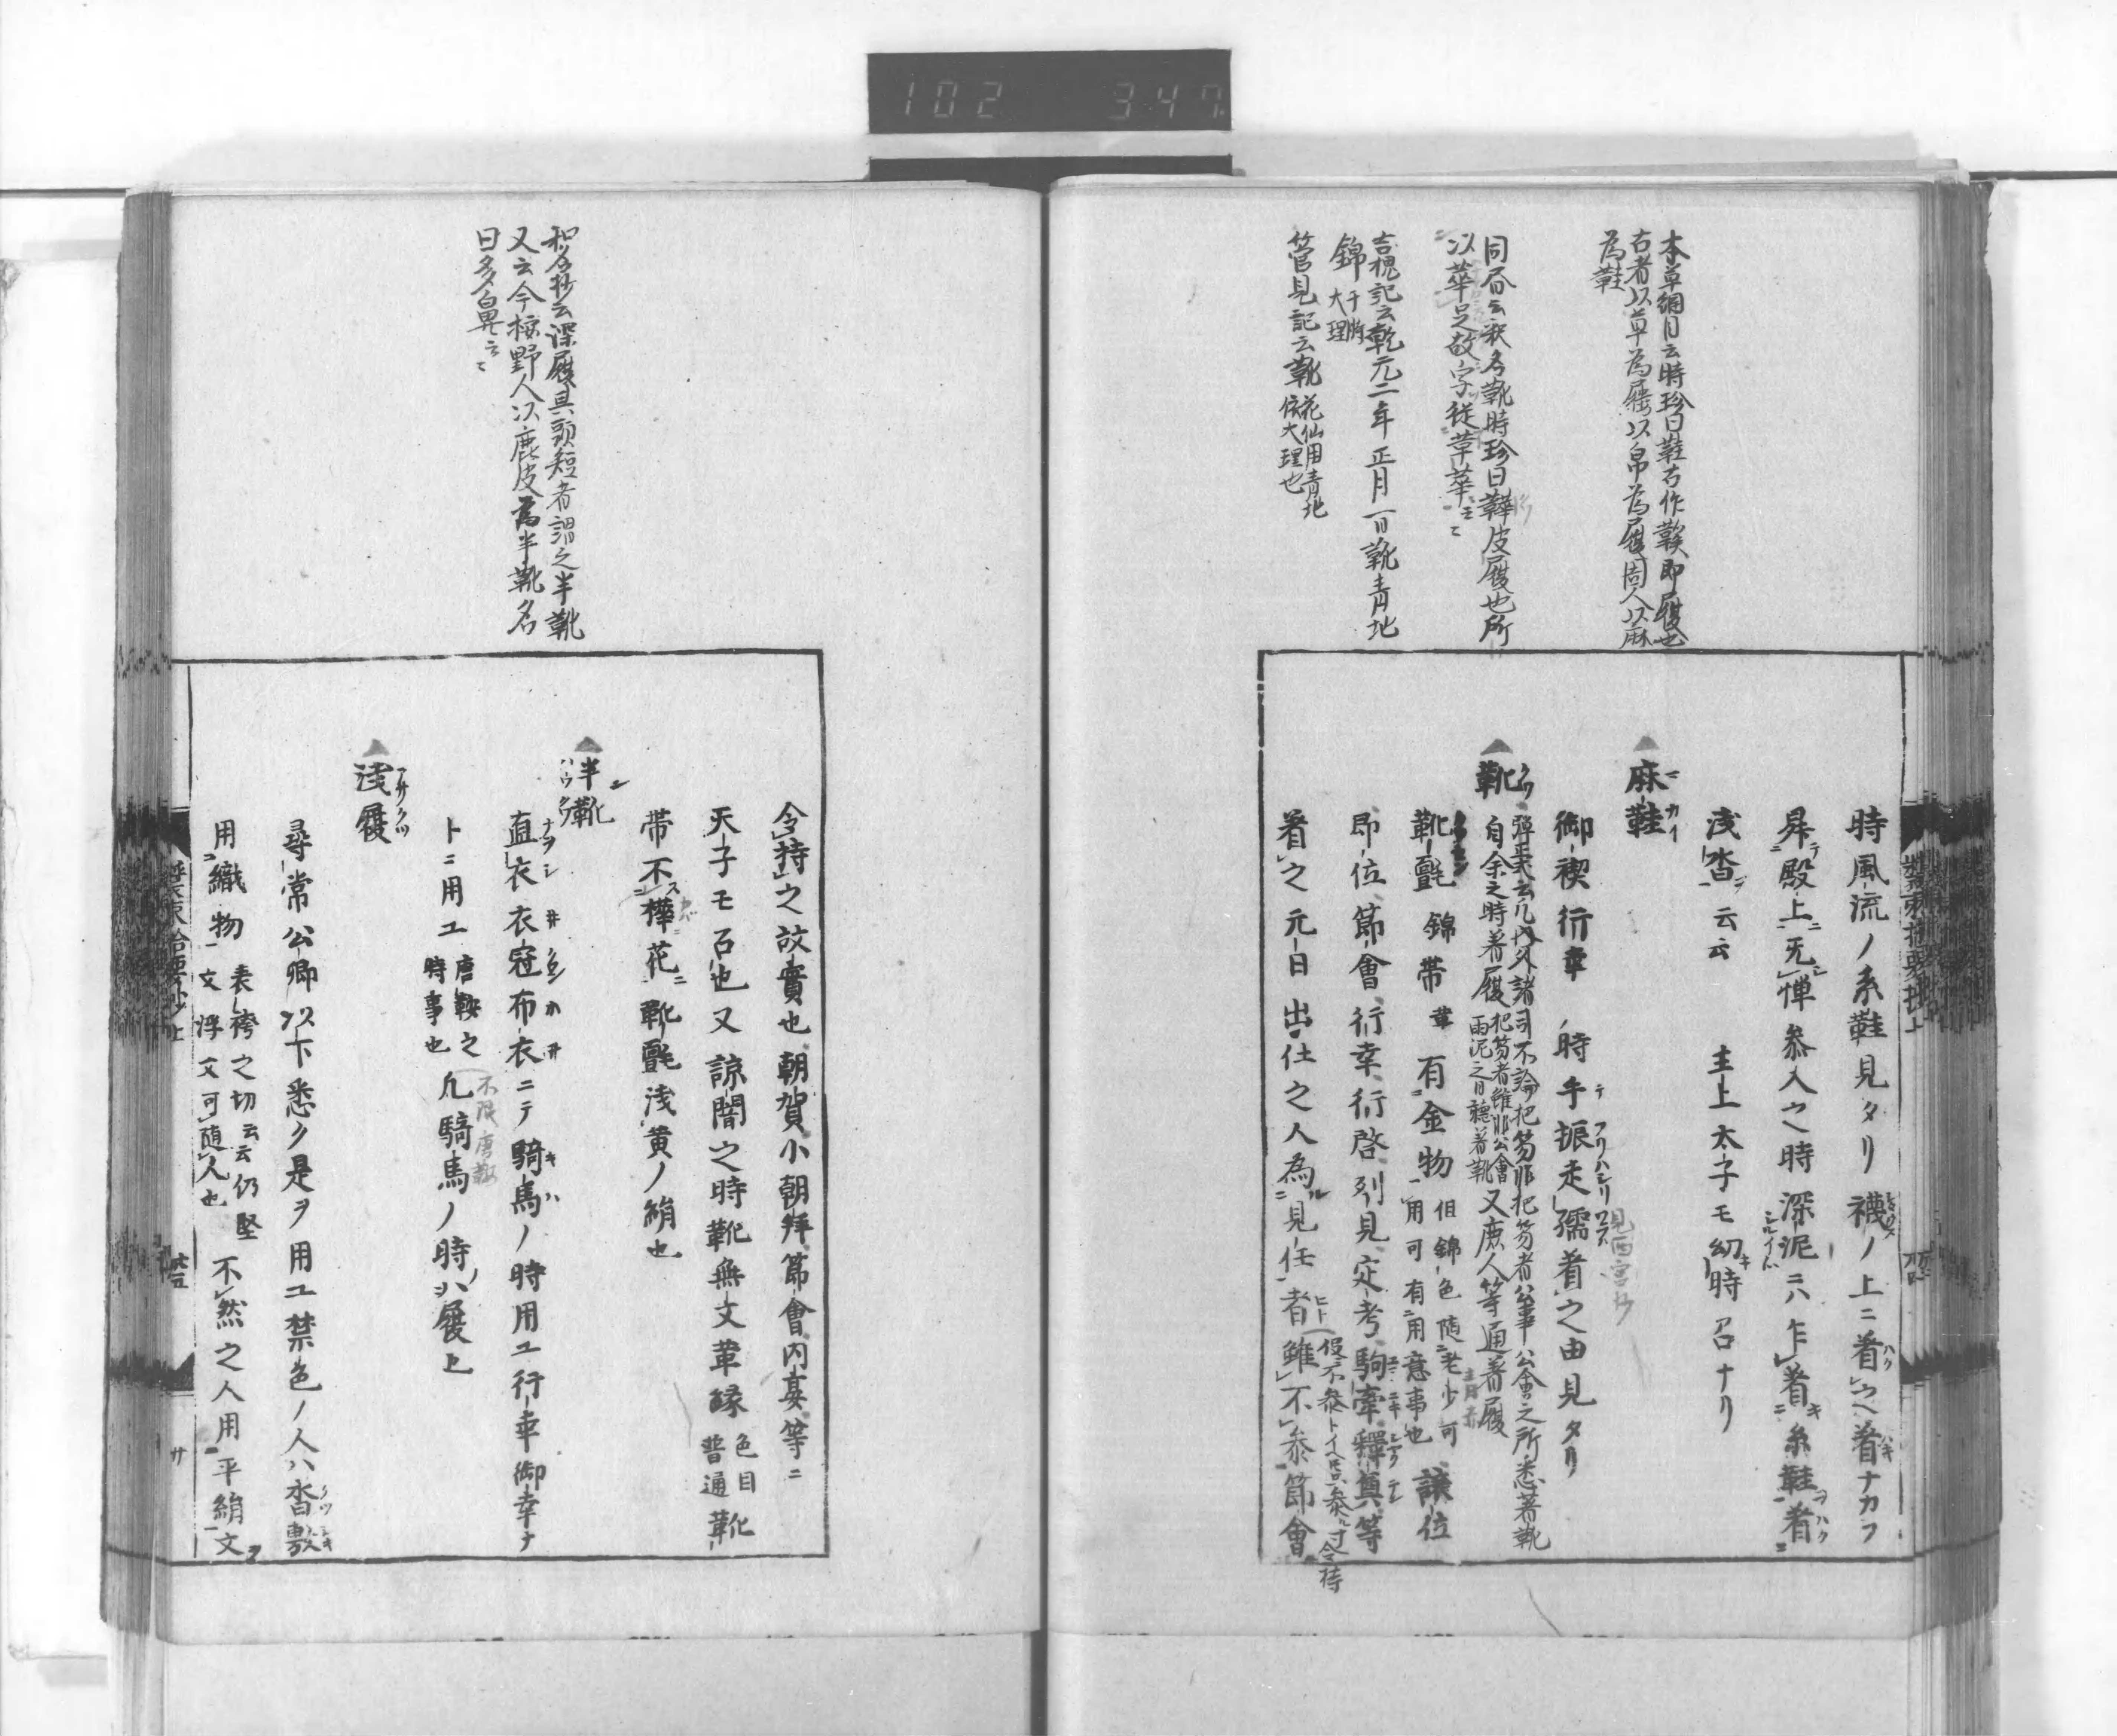 102 347
本草綱目云時珍曰鞋古作鞵即履也
古者以草為屨以帛為履周人以麻
為鞋
同居云釈名靴時珍曰鞾皮履也所
以華足故字従革華云々
吉槐記云乾元二年正月一日靴青地
錦
大理
管見記云靴 花仙用青地
依大理也
時風流ノ糸鞋見タリ 襪ノ上ニ着之着ナカラ
昇殿上旡憚参入之時深泥ニハ乍着糸鞋着
浅沓云云 主上太子モ幼時召ナリ
麻鞋
御禊行幸ノ時手振走孺着之由見タリ
見西宮抄
靴
弾正式云凡内外諸司不論把笏非把笏者公事公会之所悉著靴
自余之時著履 把笏者雖非公會
雨泥之日聴著靴 又庶人等通著履
靴氈錦帯革有金物 但錦色随老少可
用可有用意事也 譲位
即位節會行幸行啓列見定考駒牽釋奠等
着之元日出仕之人為見任者雖不参節會
令持之故實也朝賀小朝拜節會内宴等ニ
天子モ召也又諒闇之時靴無文革縁 色目
普通 靴
帯不樺花ニ靴氈浅黄ノ絹也
和名抄云深履其頭短者謂之半靴
又云今桉野人以鹿皮為半靴名
曰多鼻云々
半靴
直衣衣冠布衣ニテ騎馬ノ時用ユ行幸御幸ナ
トニ用ユ 唐鞍之
時事也 凡騎馬ノ時ハ履上
浅履
アサクツ
尋常公卿以下悉ク是ヲ用ユ禁色ノ人ハ沓敷
用織物 表袴之切云云仍堅
文浮文可随人也 不然之人用平絹文